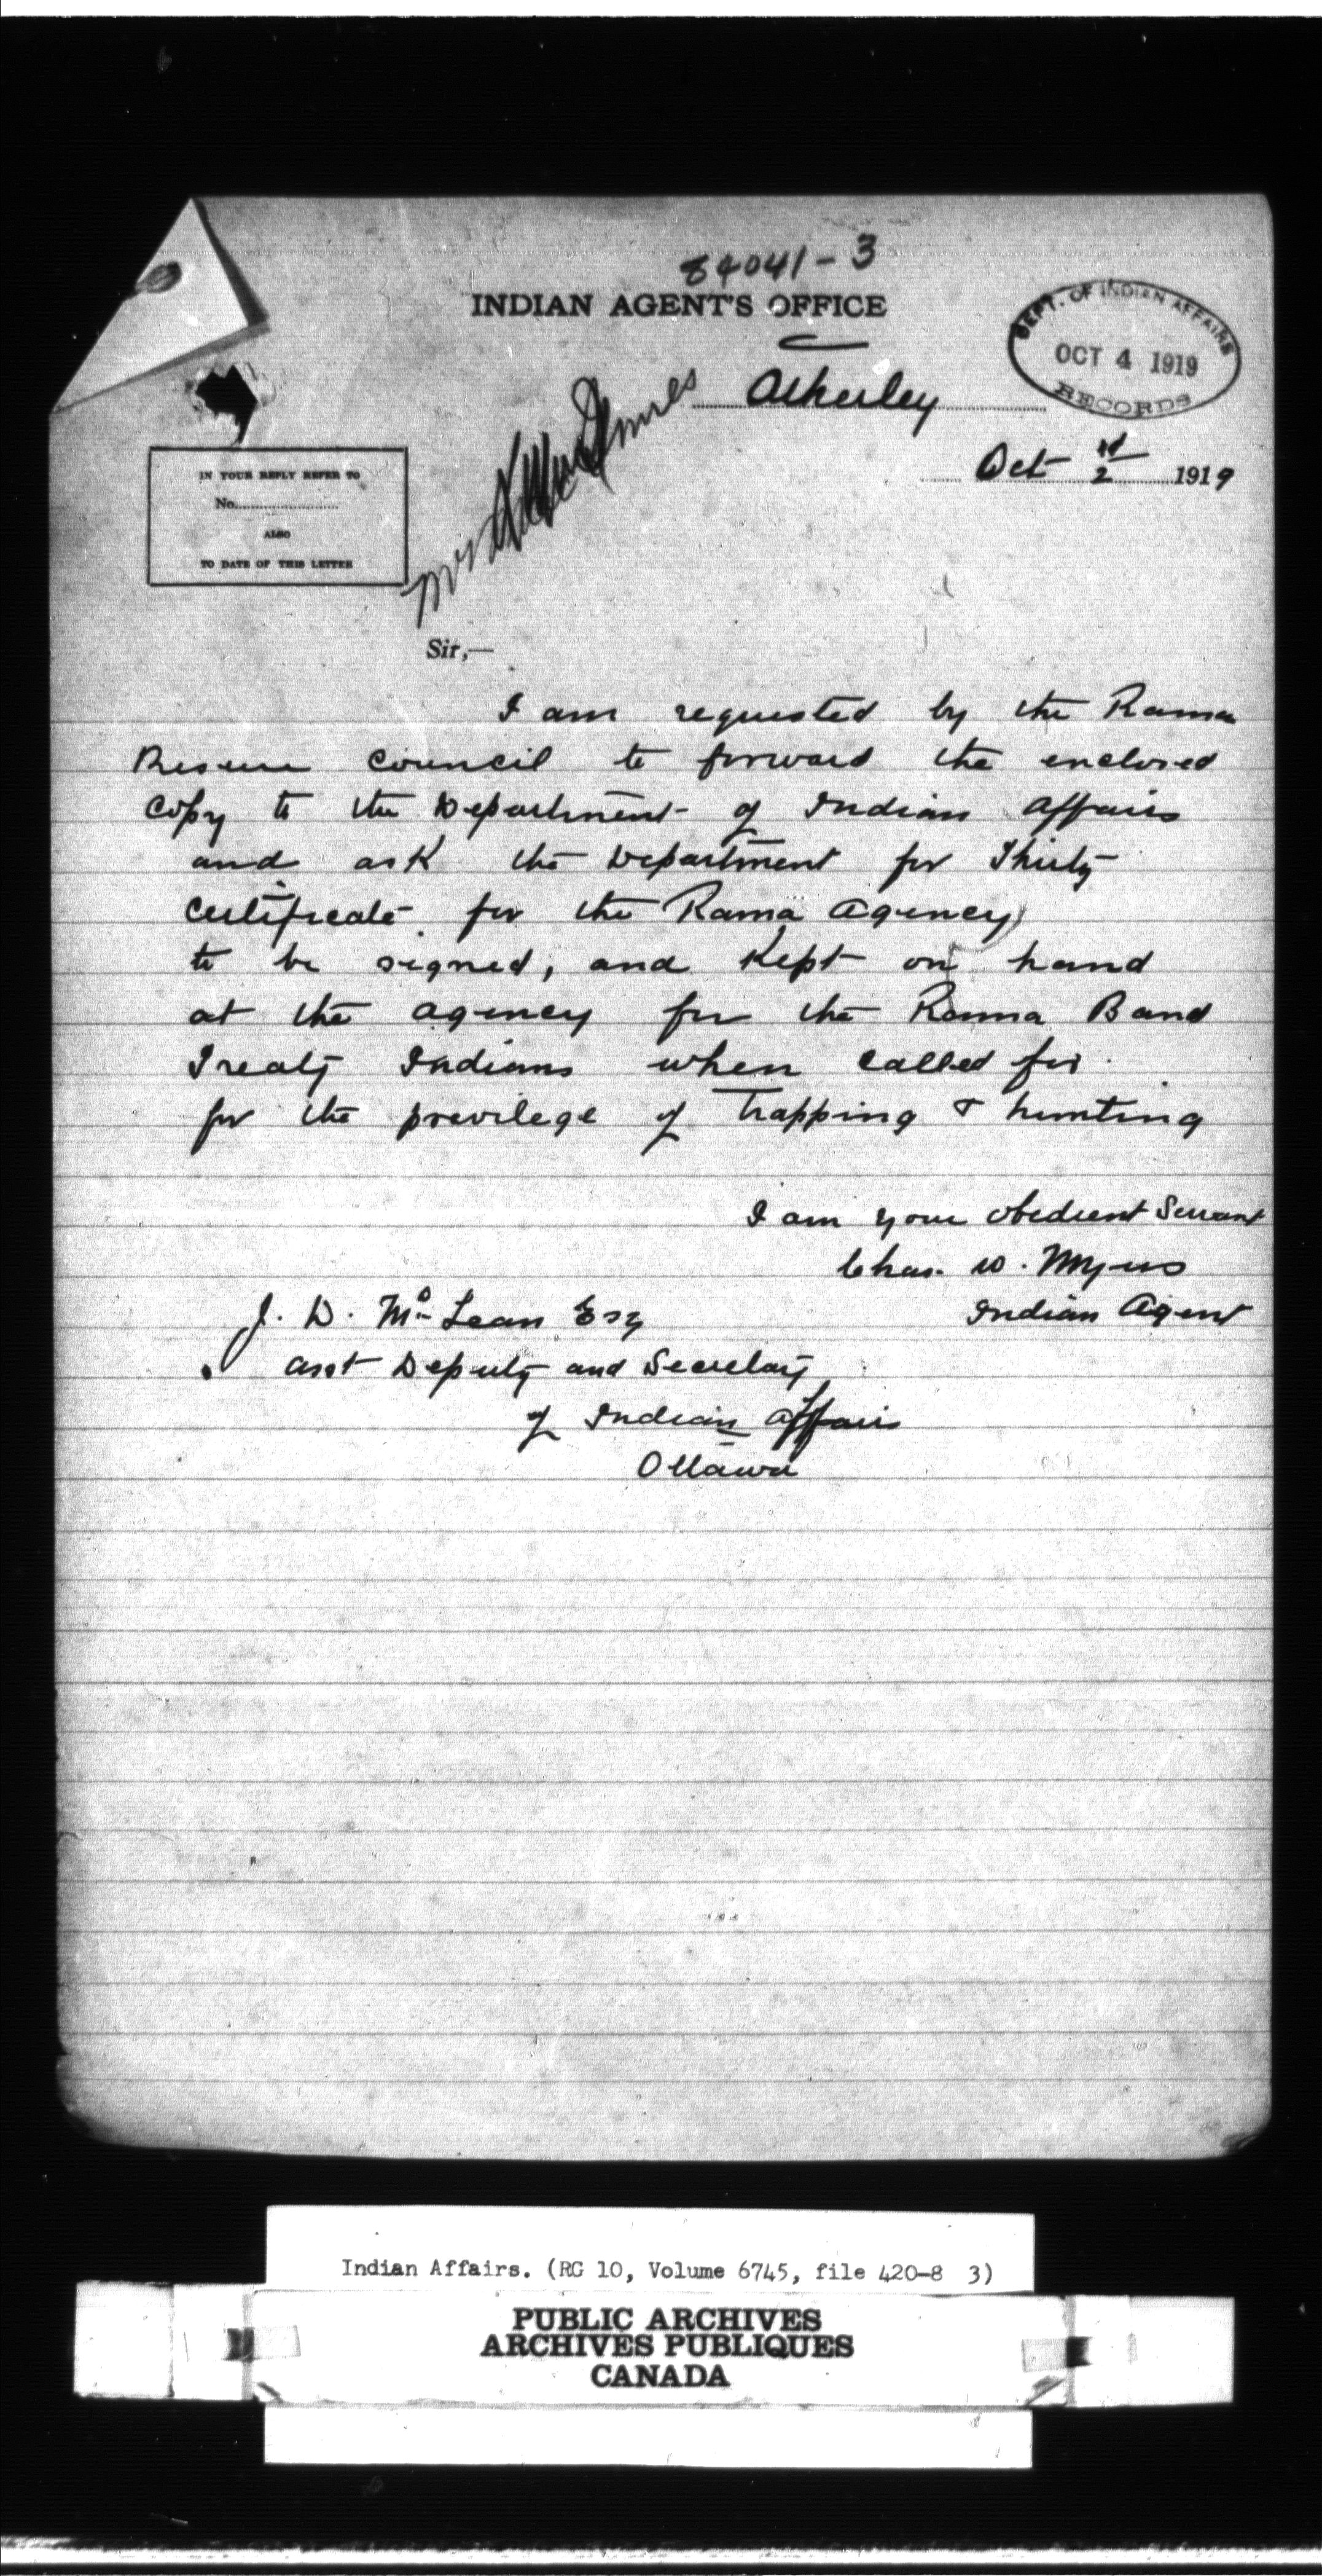 84041-3
INDIAN AGENT'S OFFICE
DEPT. OF INDIAN AFFAIRS
OCT 4 1919
RECORDS
Atherley
Oct 2nd 1919
IN YOUR REPLY REFER TO
No.
ALSO
TO DATE OF THIS LETTER
Mr
Sir,—
I am requested by the Rama
Reserve Council to forward the enclosed
Copy to the Department of Indian Affairs
and ask the Department for Thirty
Certificate for the Rama Agency
to be signed, and Kept on hand
at the agency for the Rama Band
Treaty Indians when called for
for the privilege of Trapping & hunting
I am your obedient Servant
Chas. W. Myers
Indian Agent
J. D. McLean Esq
Asst Deputy and Secretary
of Indian Affairs
Ottawa
Indian Affairs. (RG 10, Volume 6745, file 420-8 3)
PUBLIC ARCHIVES
ARCHIVES PUBLIQUES
CANADA